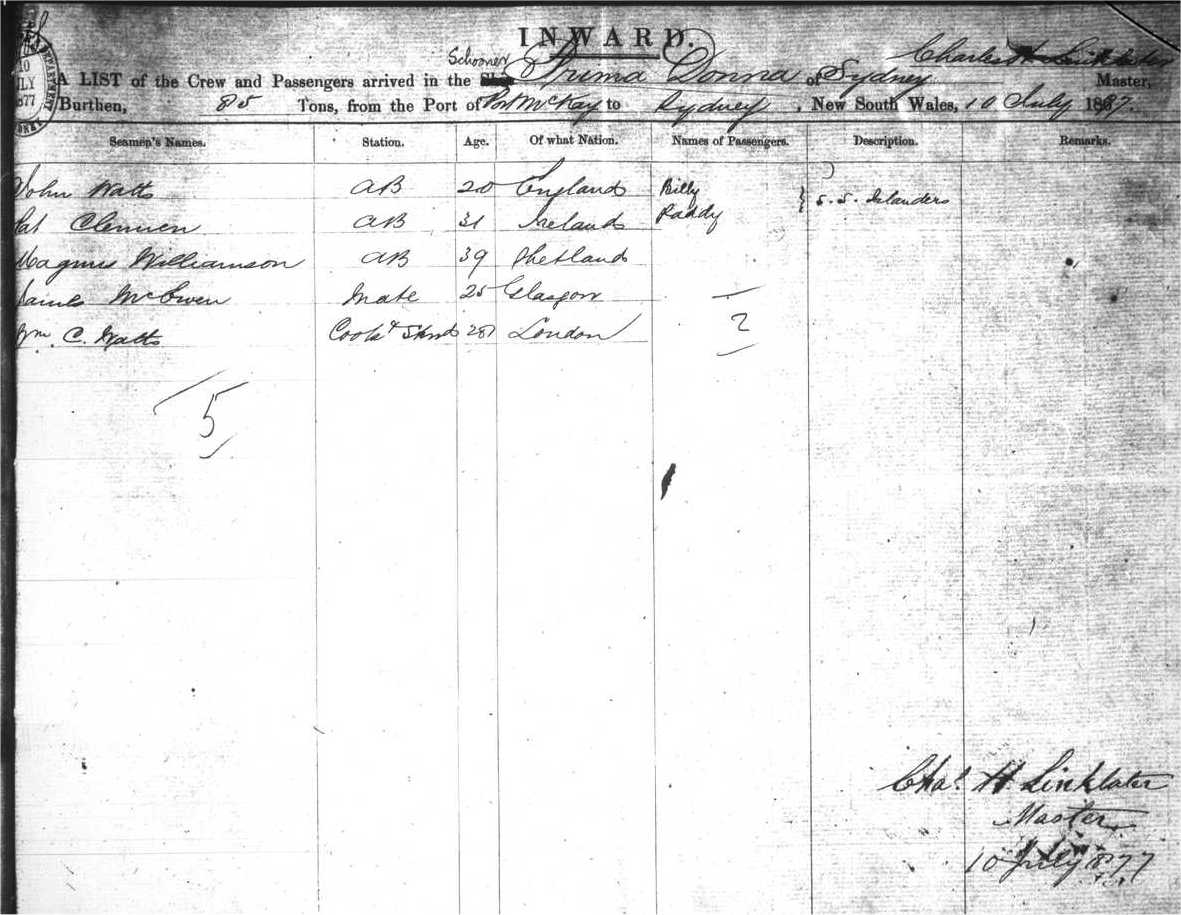 INWARD.
Schooner
Charles H Linklater
A LIST of the Crew and Passengers arrived in the Ship Prima Donna of Sydney Master,
Burthen, 85 Tons, from the Port of Port McKay to Sydney, New South Wales, 10 July 1877.
Seamen's Names. Station. Age. Of what Nation. Names of Passengers. Description. Remarks.
John Watts AB 20 England Billy } S. S. Islanders
Pat AB 31 Ireland Paddy
Magnus Williamson AB 39 Shetland
James McEwen Mate 25 Glasgow
Wm. C. Watts Cook & Stwd 28 London 2
5
Chas. H. Linklater
Master
10 July 1877